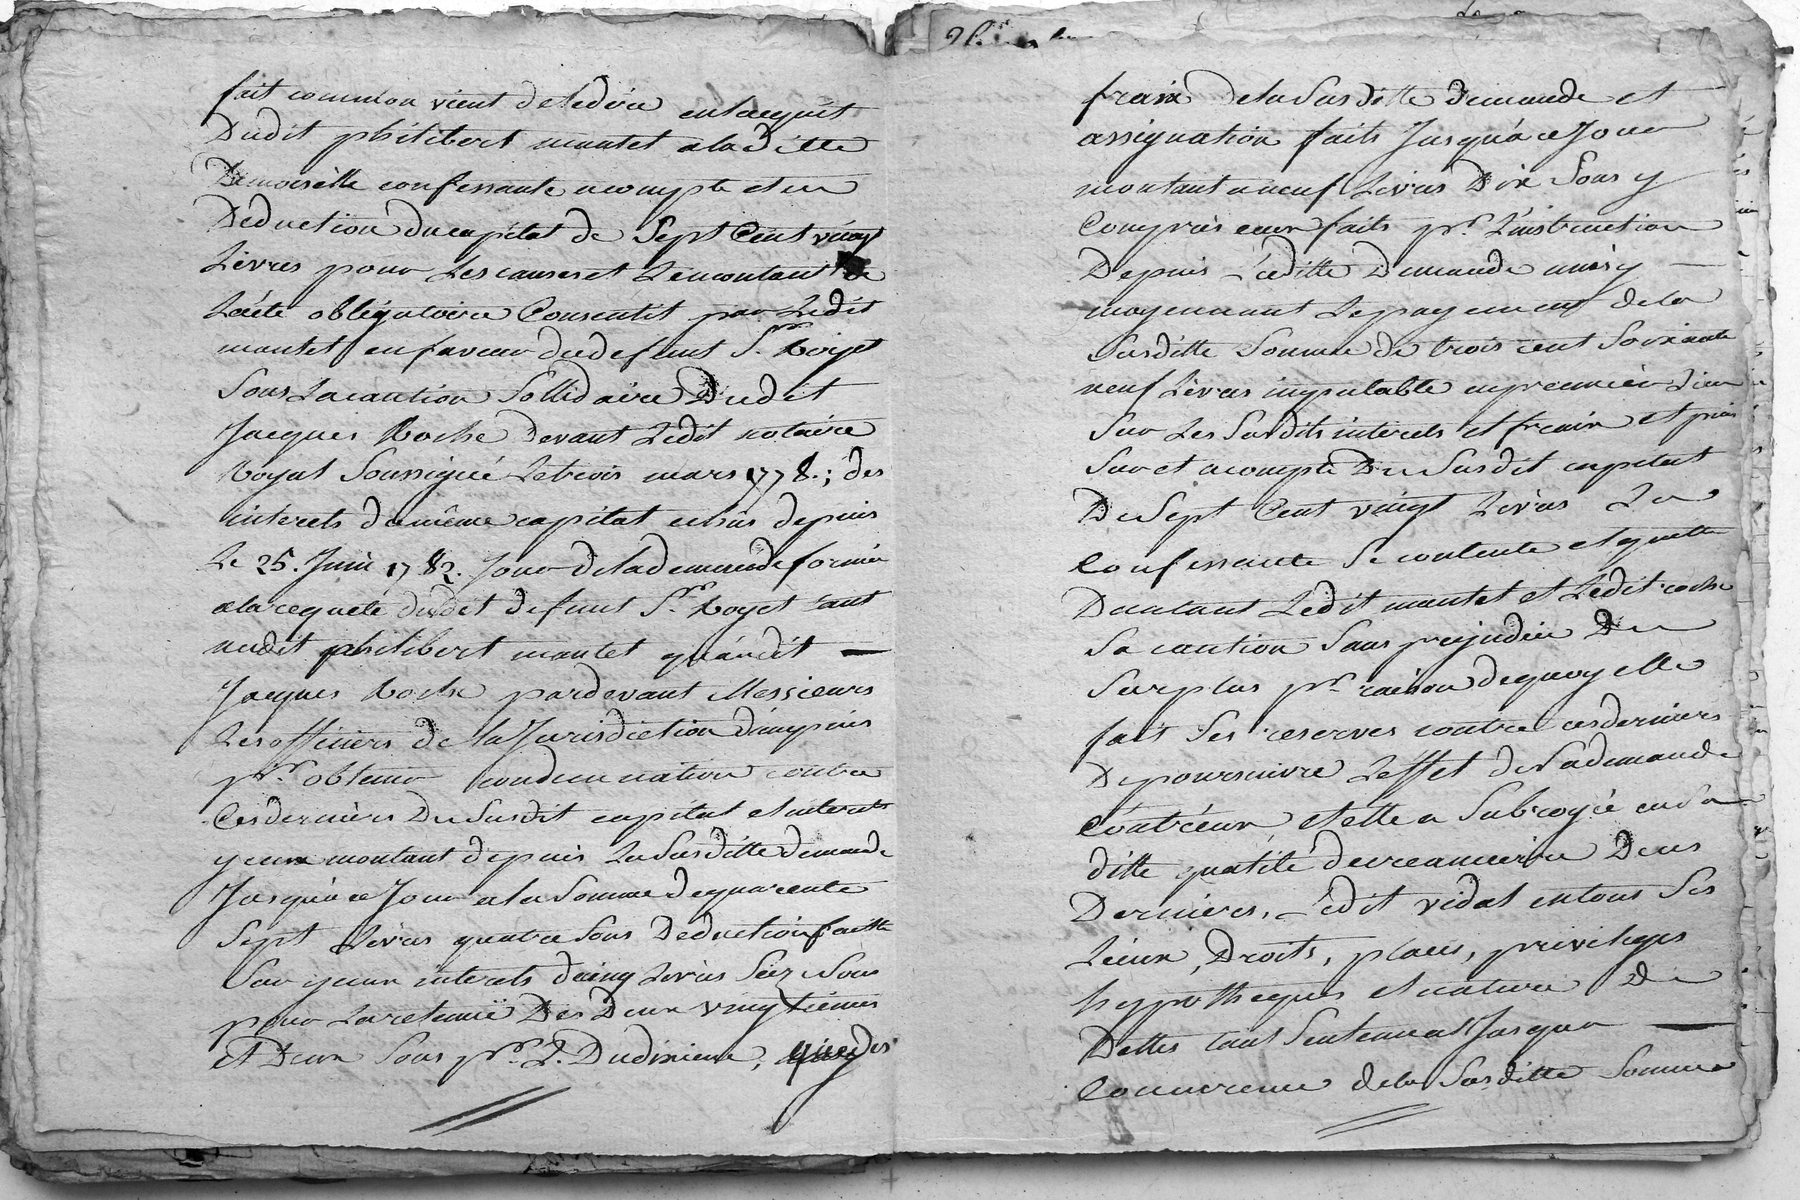 fait comme on vient de le dire en lacquit
Dudit philibert mantet a la ditte
Demoiselle confessante a compte et en
Deduction du capital de Sept Cent vingt
Livres pour Les causes et Le montant de
L'acte obligatoire Consentit par Ledit
mantet en faveur du defunt Sr. Royet
Sous La caution Sollidaire Dudit
Jacques Roche devant Ledit notaire
Royal Soussigné Le trois mars 1778.; des
interets du même capital echûs depuis
Le 25. Juin 1782. Jour de la demande formée
a la requete dudit defunt Sr. Royet tant
audit philibert mantet qu'audit
Jacques Roche pardevant Messieurs
Les officiers de la Jurisdiction d'ampuis
pr. obtenir condemnation contre
Ces derniers Du Susdit capital et interets
yceux montant depuis La Susditte demande
Jusqu'a ce Jour a la Somme de quarente
Sept Livres quatre Sous Deduction faitte
Sur yceux interets de cinq Livres Seize Sous
pour La retenüe Des Deux vingtiemes
et Deux Sous pr. L. Du dixieme, des
2
fraix de la Susditte demande et
assignation faits Jusqu'a ce Jour
montant a neuf Livres Dix Sous y
Compris ceux faits pr. L'instruction
Depuis Laditte Demande
moyennant Le payement de la
Susditte Somme de trois cent Soixante
neuf Livres imputable en premier Lieu
Sur Les Susdits interets et fraix et puis
Sur et a compte Du Susdit capital
De Sept Cent vingt Livres La
Confessante Se contente et quitte
D'autant Ledit mantet et Ledit roche
Sa caution Sans prejudice Du
Surplus pr. raison de quoy elle
fait Ses reserves contre ces derniers
De poursuivre L'effet de Sa demande
Contr'eux et elle a Subrogée en Sa
ditte qualité de creanciere Deces
Derniers, Ledit vidal en tous Ses
Lieux, Droits, place, privileges
hypotheques et nature De
Dettes tant Seulement Jusqua
Concurrence de la Susditte Somme